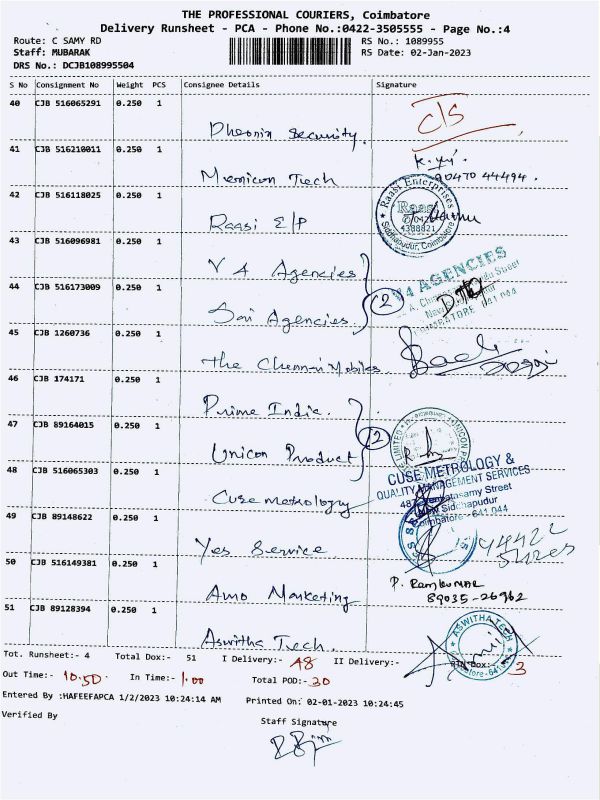 THE PROFESSIONAL COURIERS, Coimbatore
Delivery Runsheet - PCA - Phone No.:0422-3505555 - Page No.:4
Route: C SAMY RD RS No.: 1089955
Staff: MUBARAK RS Date: 02-Jan-2023
DRS No.: DCJB108995504
S No Consignment No Weight PCS Consignee Details Signature
40 CJB 516065291 0.250 1
Pheonix Security. C/S
41 CJB 516210011 0.250 1
90470 44494.
Tech
42 CJB 516118025 0.250 1
Raasi Enterprises
Raasi
4388821
Siddhapudur, Coimbatore
Raasi E/P
43 CJB 516096981 0.250 1
V4 AGENCIES
V A Agencies
44 CJB 516173009 0.250 1
2
Street
COIMBATORE 641 044
Sai Agencies
45 CJB 1260736 0.250 1
The Chennai Mobiles
46 CJB 174171 0.250 1
Prime India.
47 CJB 89164015 0.250 1
2
Unicon Product
CUSE METROLOGY &
QUALITY MANAGEMENT SERVICES
48 CJB 516065303 0.250 1
Street
Siddhapudur
Coimbatore - 641 044
Cuse metrology
49 CJB 89148622 0.250 1
Yes Service
50 CJB 516149381 0.250 1
P. Ramkumar
89035-26962
Amo Marketing
51 CJB 89128394 0.250 1
ASWITHA TECH
Aswitha Tech.
Tot. Runsheet:- 4 Total Dox:- 51 I Delivery:- 48 II Delivery:- 3
Out Time:- 10.50 In Time:- 1.00 Total POD:- 30
Entered By :HAFEEFAPCA 1/2/2023 10:24:14 AM Printed On: 02-01-2023 10:24:45
Verified By
Staff Signature